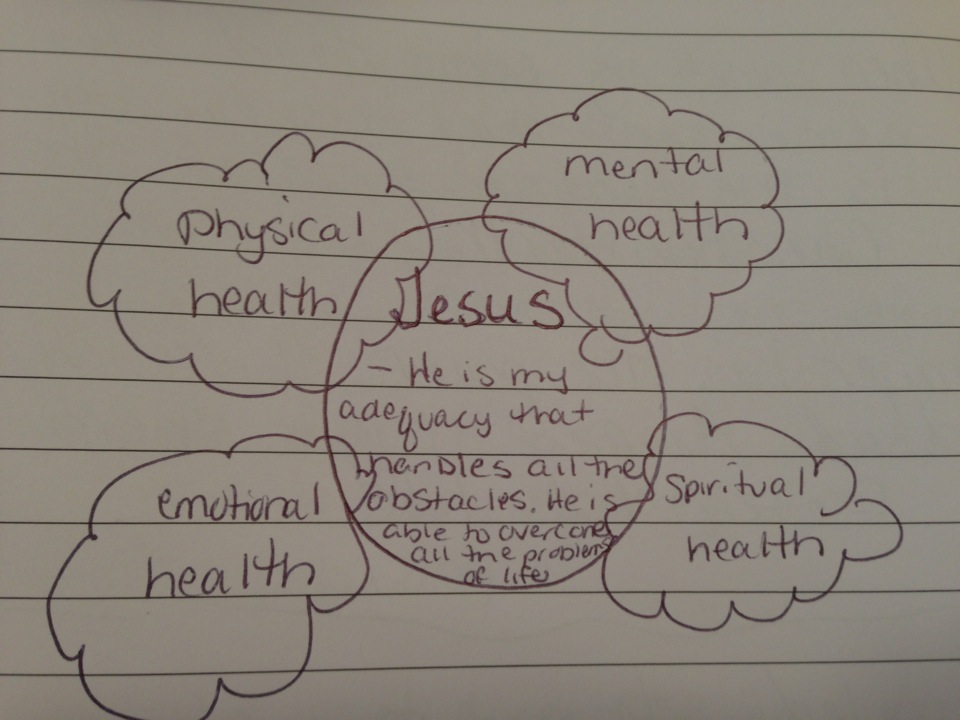 mental
health
physical
health
Jesus
- He is my
adequacy that
handles all the
obstacles. He is
able to overcome
all the problems
of life
emotional
health
Spiritual
health